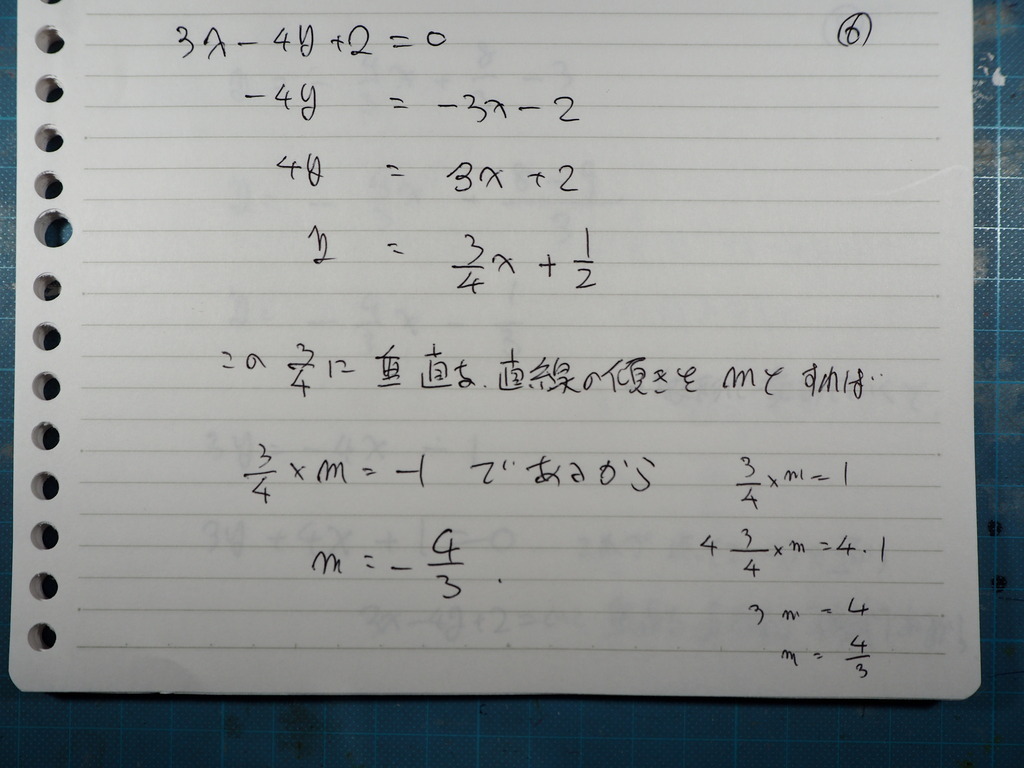 ⑥
3x - 4y + 2 = 0
-4y = -3x - 2
4y = 3x + 2
y = 3/4 x + 1/2
この 3/4 に 垂直な、直線の傾きを m と すれば…
3/4 × m = -1 であるから
m = - 4/3 .
3/4 × m = 1
4 3/4 × m = 4 . 1
3 m = 4
m = 4/3